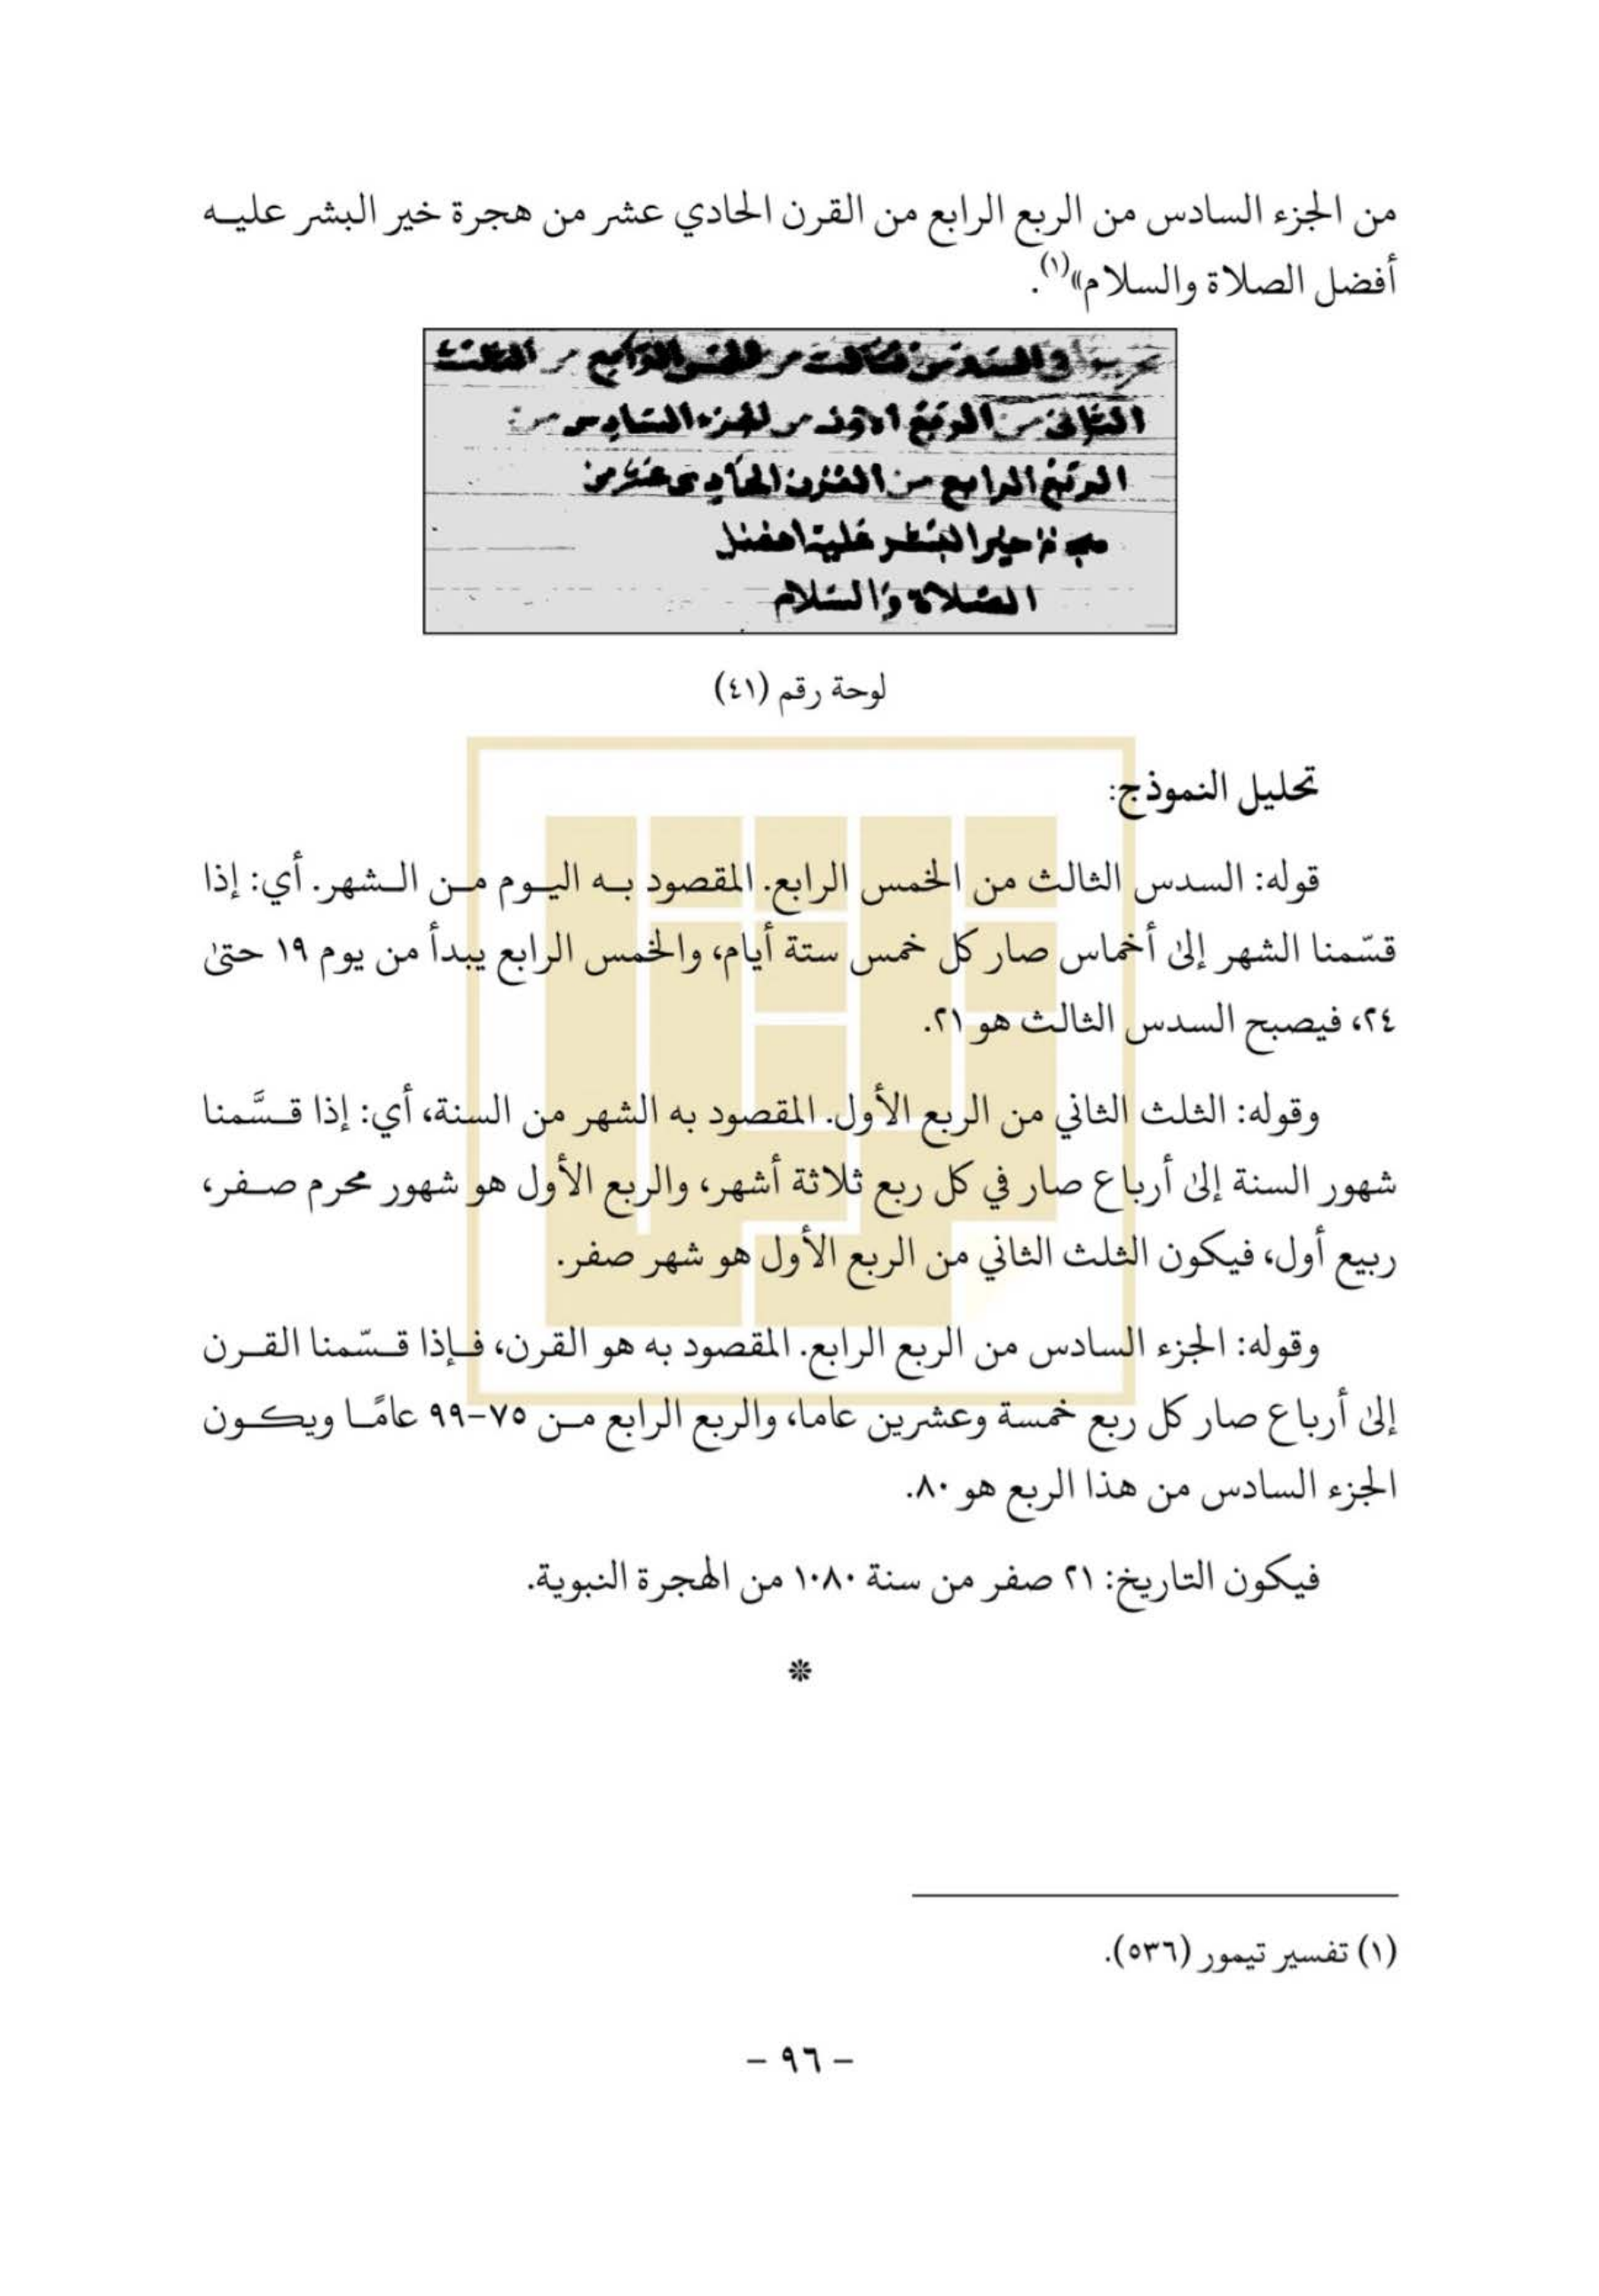 من الجزء السادس من الربع الرابع من القرن الحادي عشر من هجرة خير البشر عليه
أفضل الصلاة والسلام»(١).
في السدس الثالث من الخمس الرابع من الثلث
الثاني من الربع الاول من الجزء السادس من
الربع الرابع من القرن الحادي عشر من
هجرة خير البشر عليه افضل
الصلاة والسلام
لوحة رقم (٤١)
تحليل النموذج:
قوله: السدس الثالث من الخمس الرابع. المقصود به اليوم من الشهر. أي: إذا
قسّمنا الشهر إلىٰ أخماس صار كل خمس ستة أيام، والخمس الرابع يبدأ من يوم ١٩ حتىٰ
٢٤، فيصبح السدس الثالث هو ٢١.
وقوله: الثلث الثاني من الربع الأول. المقصود به الشهر من السنة، أي: إذا قسَّمنا
شهور السنة إلىٰ أرباع صار في كل ربع ثلاثة أشهر، والربع الأول هو شهور محرم صفر،
ربيع أول، فيكون الثلث الثاني من الربع الأول هو شهر صفر.
وقوله: الجزء السادس من الربع الرابع. المقصود به هو القرن، فإذا قسّمنا القرن
إلىٰ أرباع صار كل ربع خمسة وعشرين عاما، والربع الرابع من ٧٥-٩٩ عامًا ويكون
الجزء السادس من هذا الربع هو ٨٠.
فيكون التاريخ: ٢١ صفر من سنة ١٠٨٠ من الهجرة النبوية.
*
(١) تفسير تيمور (٥٣٦).
– ٩٦ –